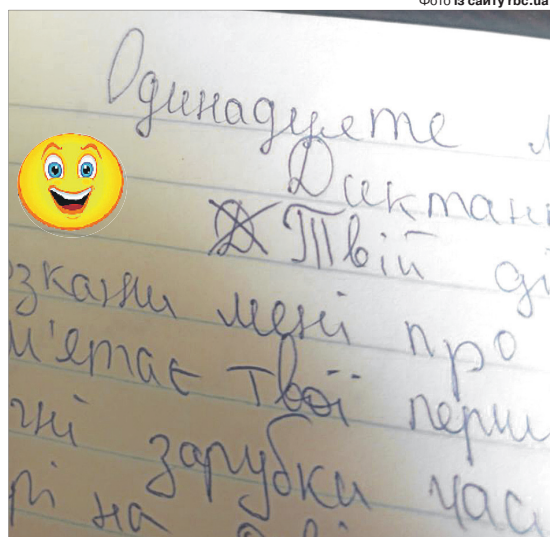 Фото із сайту rbc.ua
Одинадцяте л
Диктан
Твій ді
озкажи мені про
м'ятає твої перш
чні зарубки час
рі на